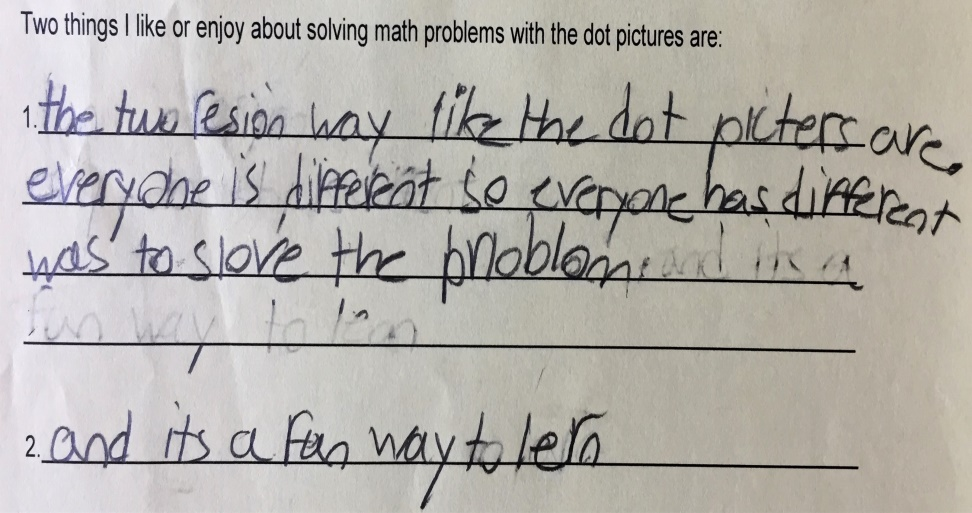 Two things I like or enjoy about solving math problems with the dot pictures are:
1. the two resion way like the dot picters are,
everyone is different so everyone has different
was to slove the problom. and its a
fun way to lern
2. and its a fun way to lern